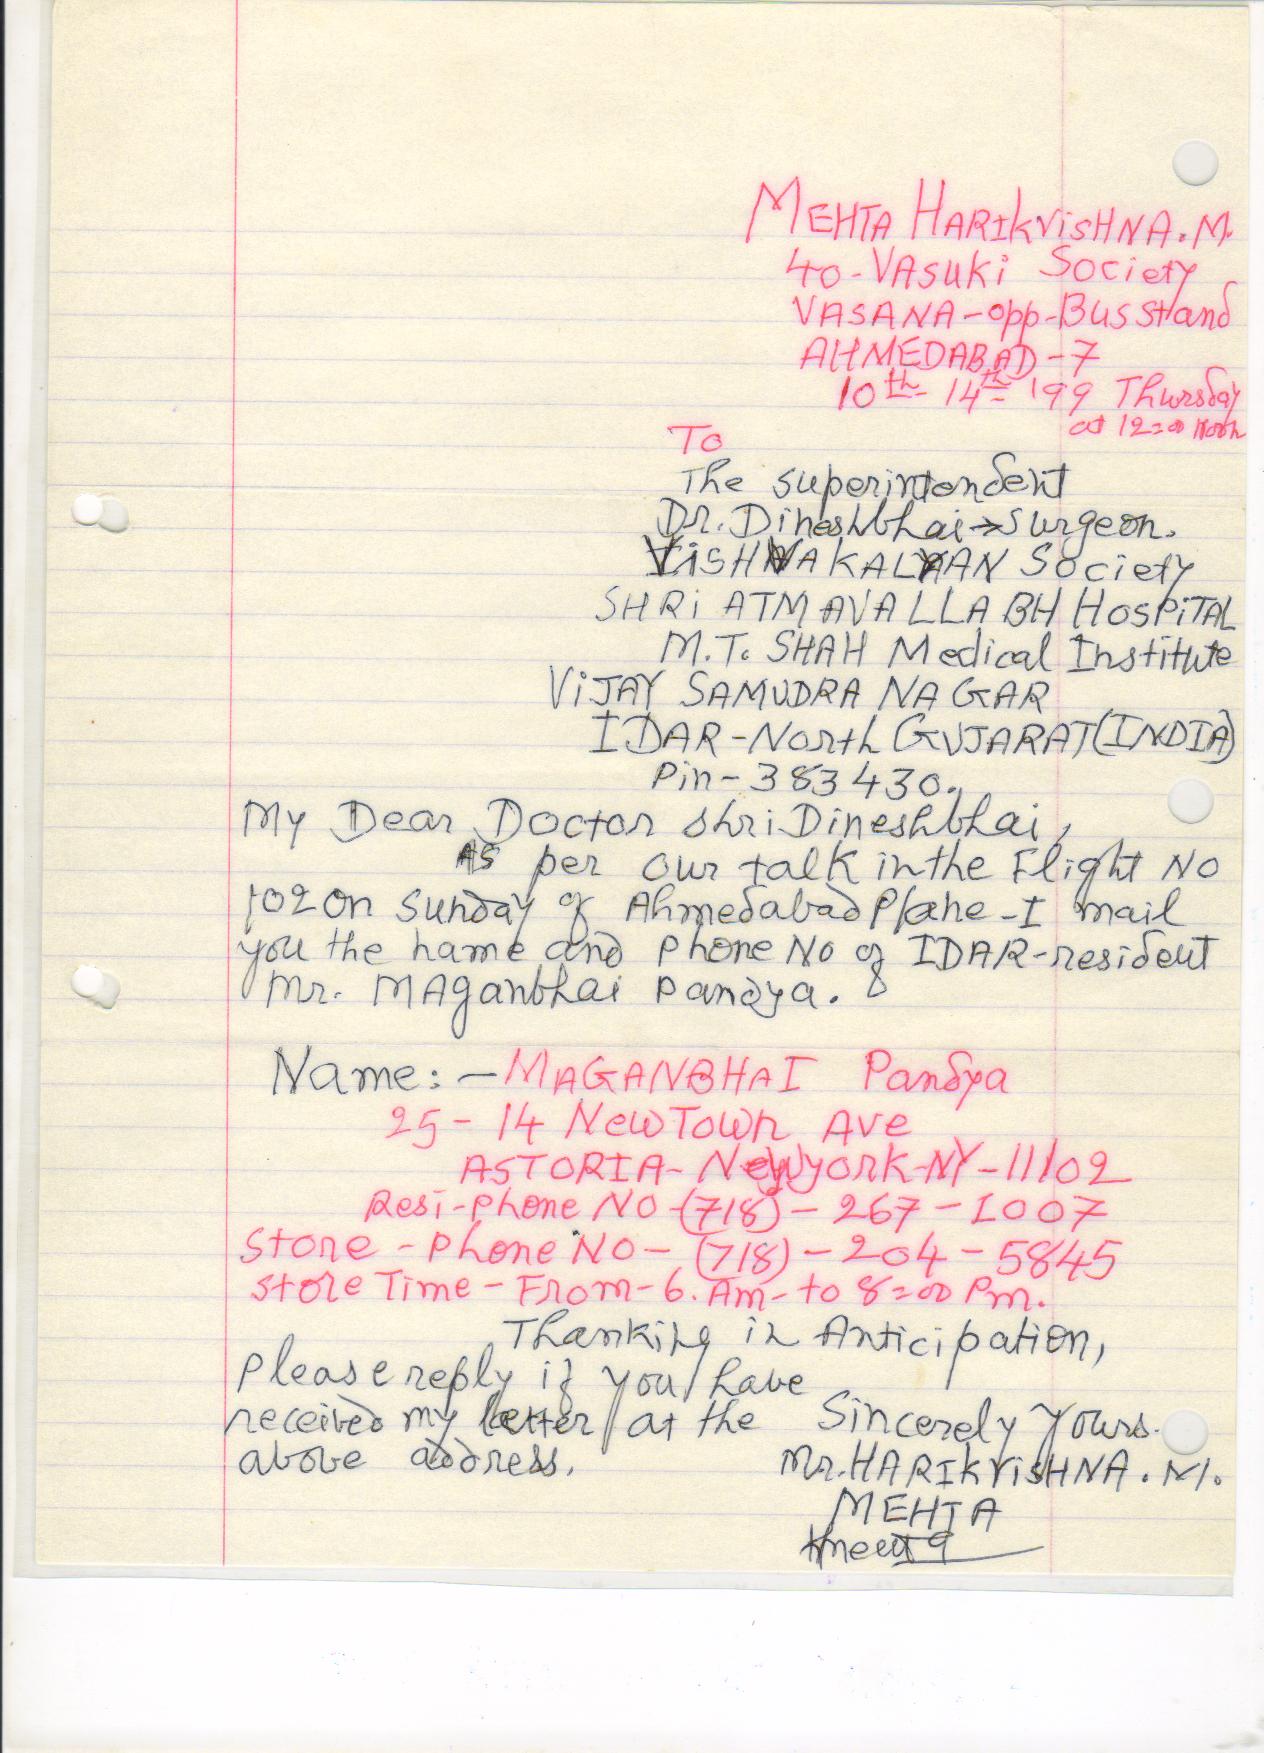 MEHTA HARIkriSHNA. M.
40-VAsuki Society
VASANA-opp-Bus stand
AHMEDABAD-7
10th- 14th '99 Thursday
at 12=00 Noon
To
The superintendent
Dr. Dineshbhai→surgeon.
ViSHVAKALYAN Society
SHRi ATMAVALLABH HosPiTAL
M.T. SHAH Medical Institute
ViJAY SAMUDRA NAGAR
IDAR-North GUJARAT(INDIA)
Pin-383430.
My Dear Doctor shri Dineshbhai,
As per our talk in the Flight No
102 on sunday of Ahmedabad Plane-I mail
you the name and phone No of IDAR-resident
Mr. MAganbhai Pandya.
Name:-MAGANBHAI Pandya
25-14 New Town Ave
ASTORIA-Newyork-NY-11102
Resi-phone NO-(718)-267-1007
Store-phone NO-(718)-204-5845
store Time-From-6. Am-to 8=00 Pm.
Thanking in Anticipation,
Please reply if you have
received my letter at the Sincerely yours.
above address. Mr. HARIkriSHNA. M.
MEHTA